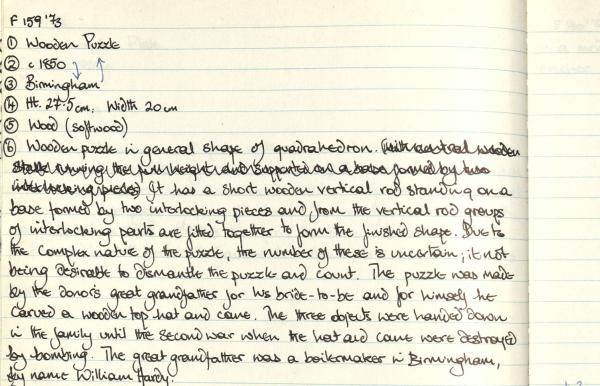 F 159'73
① Wooden Puzzle
② c 1850
③ Birmingham
④ Ht. 27.5cm, Width 20cm
⑤ Wood (softwood)
⑥ Wooden puzzle in general shape of quadrahedron. (with central wooden
running the full height and supported on a base formed by two
interlocking pieces) It has a short wooden vertical rod standing on a
base formed by two interlocking pieces and from the vertical rod groups
of interlocking parts are fitted together to form the finished shape. Due to
the complex nature of the puzzle, the number of these is uncertain; it not
being desirable to dismantle the puzzle and count. The puzzle was made
by the donor's great grandfather for his bride-to-be and for himself he
carved a wooden top hat and cane. The three objects were handed down
in the family until the second war when the hat and cane were destroyed
by bombing. The great grandfather was a boilermaker in Birmingham,
by name William Hardy.